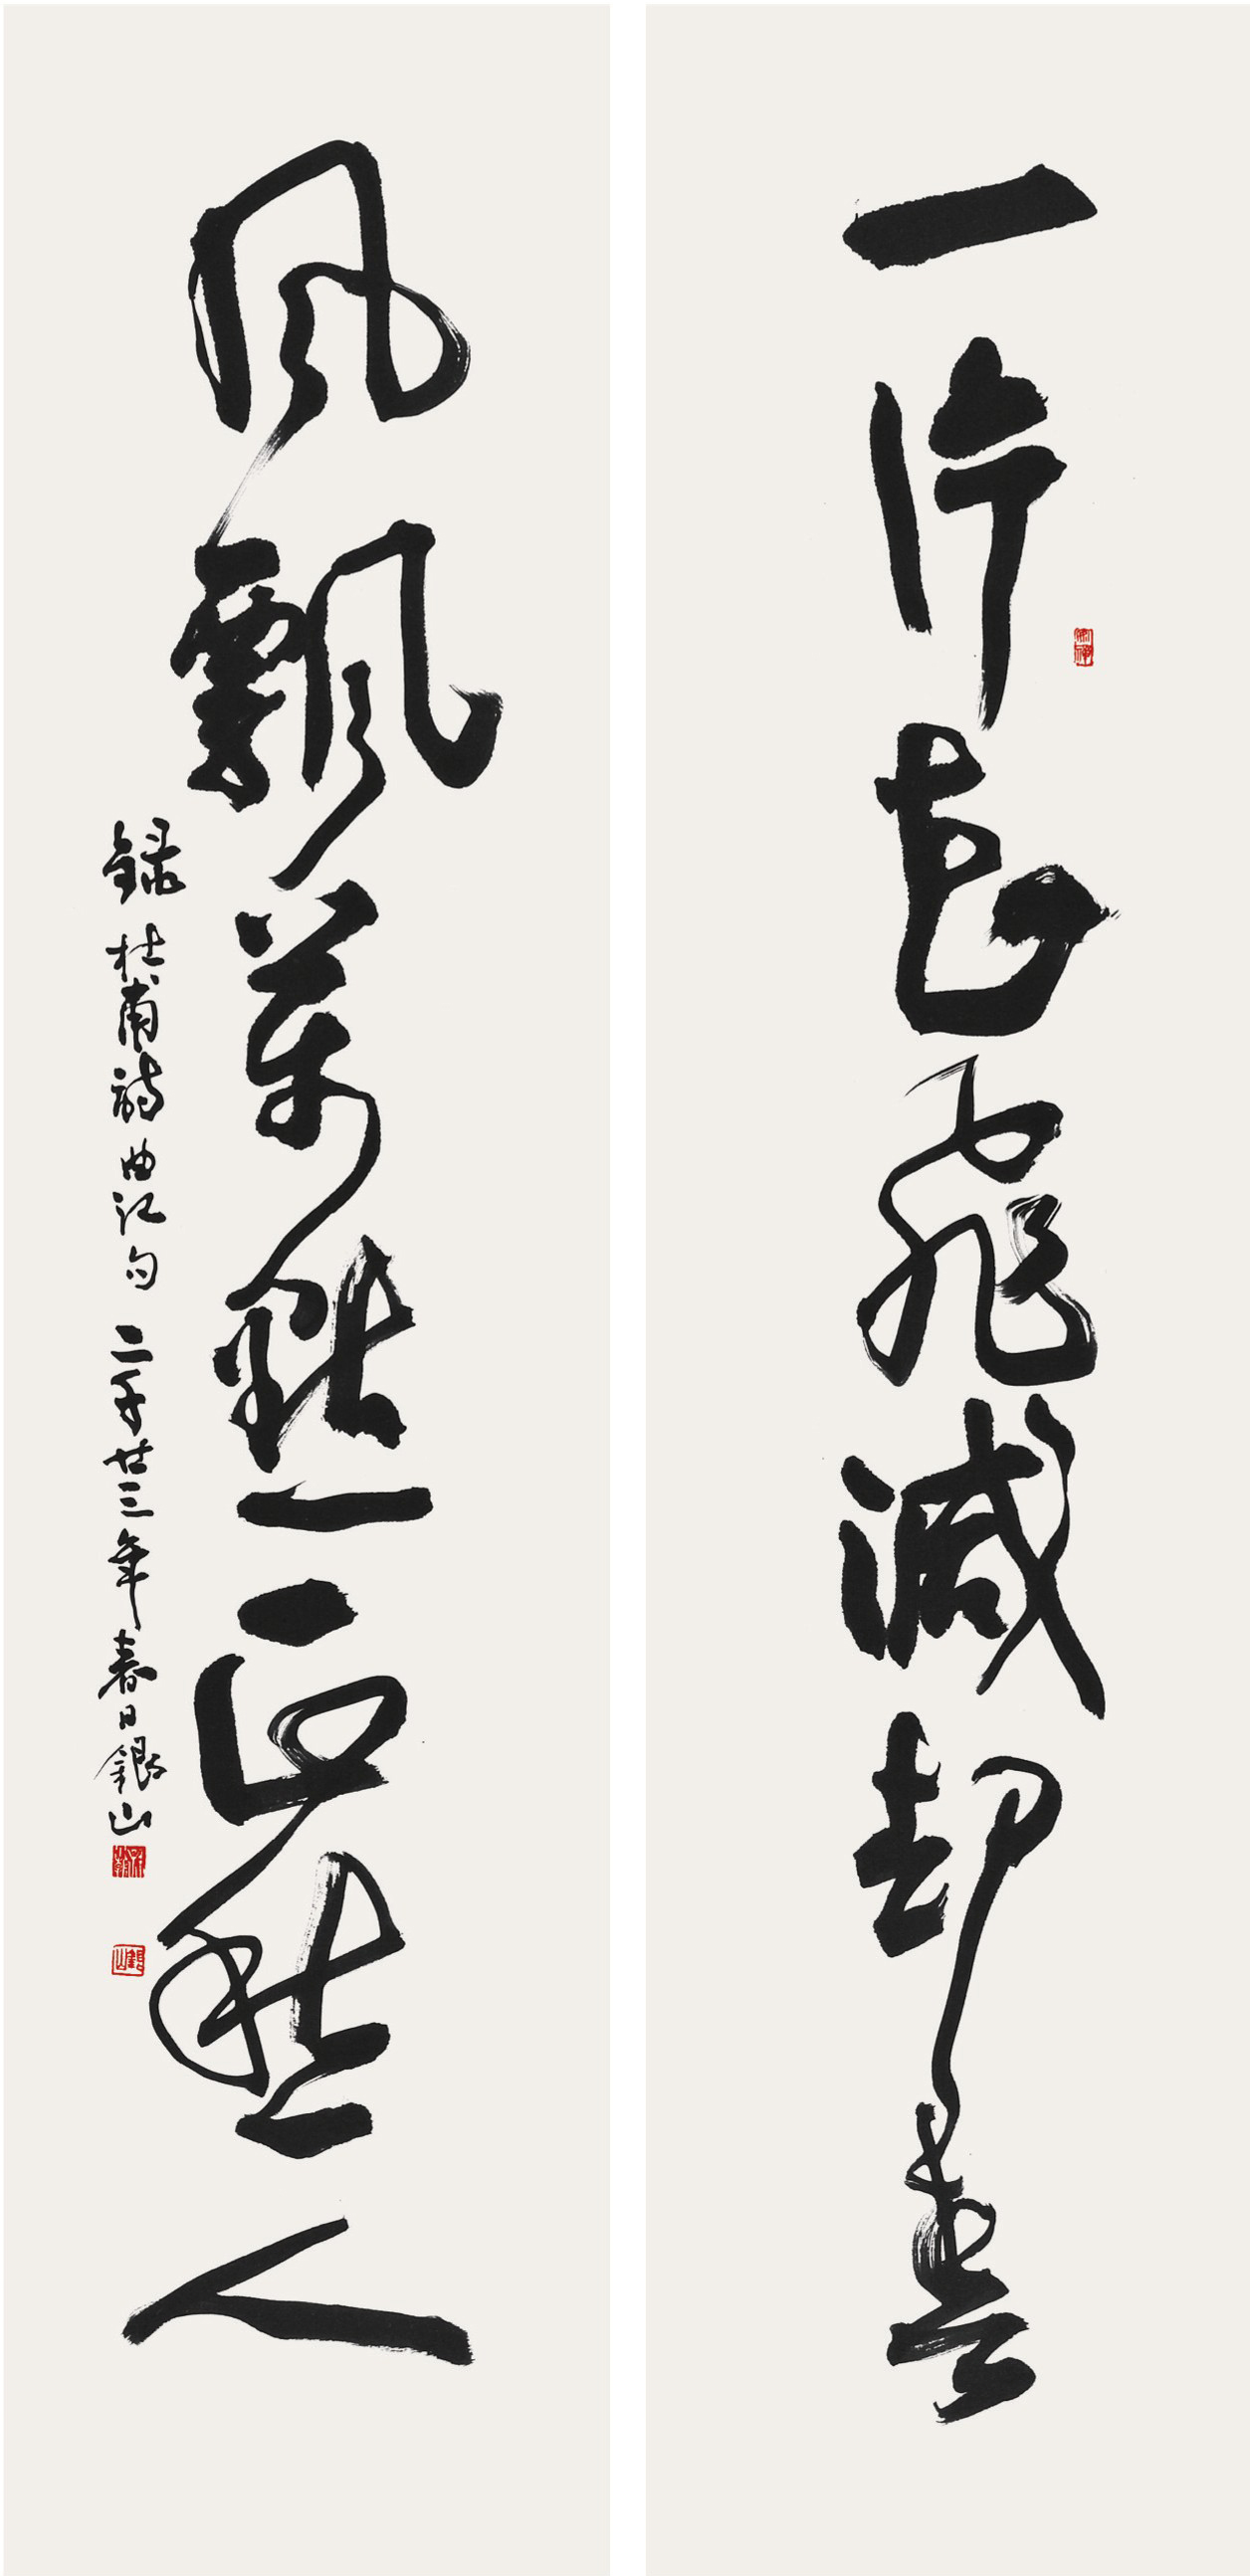 一片花飛減却春
風飄萬點正愁人
録杜甫詩曲江句 二千廿三年春日銀山